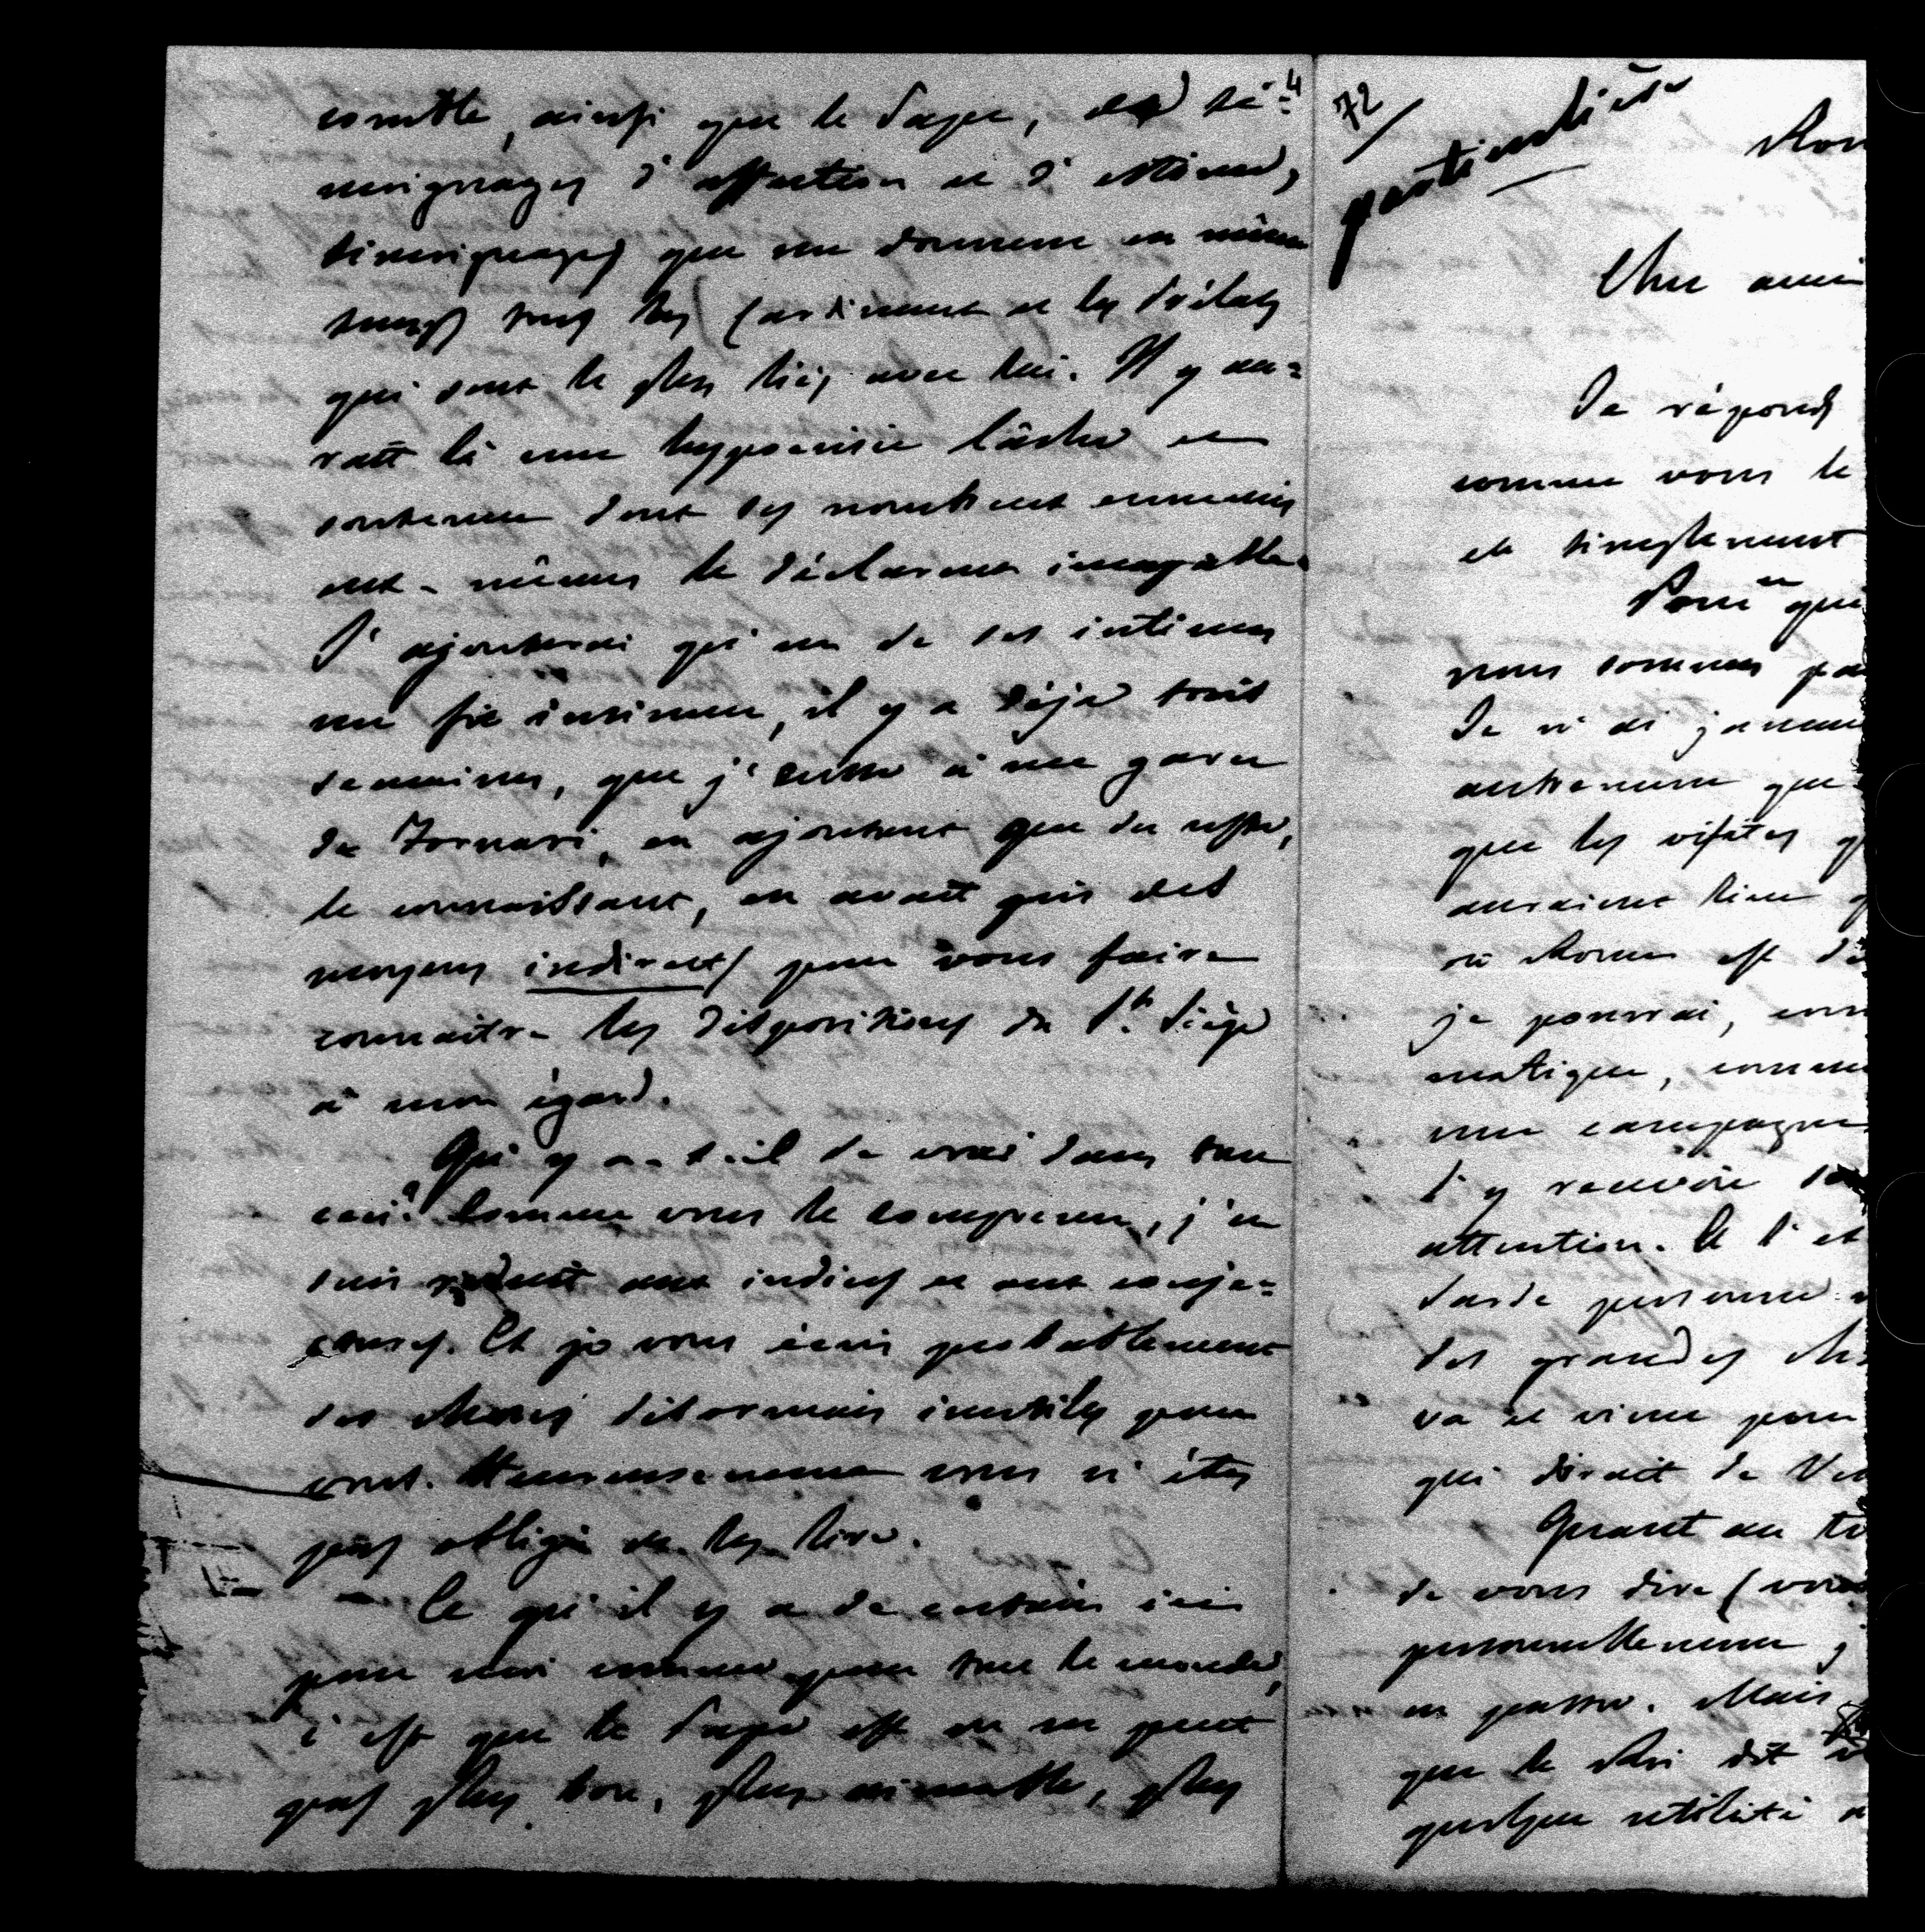 comble, ainsi que le Pape, de té=
4
moignages d'affection et d'estime,
témoignages que me donnent en même
temps tous les Cardinaux et les Prélats
qui sont le plus liés avec lui. Il y au=
rait là une hypocrisie lâche et
soutenue dont ses nombreux ennemis
eux-mêmes le déclarent incapable.
J'ajouterai qu'un de ses intimes
me fit insinuer, il y a déjà trois
semaines, que j'eusse à me garer
de Fornari, en ajoutant que du reste,
le connaissant, on avait pris des
moyens indirects pour vous faire
connaître les dispositions du St. Siège
à mon égard.
Qu'y a-t-il de vrai dans tout
ceci? Comme vous le comprenez, j'en
suis réduit aux indices et aux conje=
ctures. Et je vous écris probablement
des choses désormais inutiles pour
vous. Heureusement vous n'êtes
pas obligé de les lire.
Ce qu'il y a de certain ici
pour moi comme pour tout le monde,
c'est que le Pape est on ne peut
pas plus bon, plus aimable, plus
72
particulière
Rom
Cher ami
Je réponds
comme vous le
et simplement
Pour que
nous sommes pa
Je n'ai jamai
autrement que
que les visites q
auraient lieu q
où Rome est dé
je pourrai, com
matique, comme
une campagne
d'y recevoir
attention. C'est
tarde personne
des grandes ch
va et vient pour
qui dirait de Ve
Quant au tr
de vous dire (vou
personnellement j
en passe. Mais
que le Roi dit
quelque utilité a